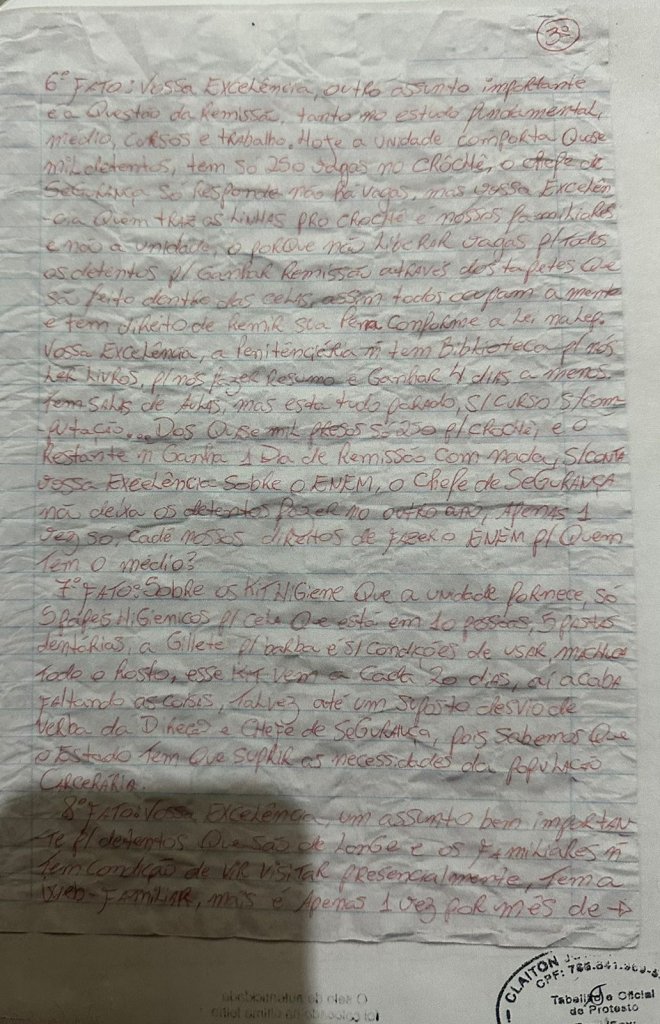 3º
6º FATO: Vossa Excelência, outro assunto importante
é a Questão da Remissão, tanto no estudo fundamental,
médio, cursos e trabalho. Hoje a unidade comporta Quse
mil detentos, tem só 250 vagas no CROCHÊ, o chefe de
SEGURANÇA só Responde não há vagas, mas vossa Excelên-
cia quem traz as Linhas pro CROCHÊ é nossos familiares
e não a unidade, o porque não Liberar vagas p/ Todos
os detentos p/ Ganhar Remissão através dos tapetes Que
são feito dentre das celas, assim todos ocupam a mente
e tem direito de Remir sua Pena conforme a Lei na Lep.
Vossa Excelência, a Penitênciária ñ tem Biblioteca p/ nós
Ler Livros, p/ nós fazer Resumo e Ganhar 4 dias a menos.
Tem Salas de Aulas, mas esta tudo parado, S/ curso S/ com-
putação... Dos Quse mil presos só 250 p/ CROCHÊ, e o
Restante ñ Ganha 1 Dia de Remissão com nada, S/ conta
vossa Excelência sobre o ENEM, o Chefe de SEGURANÇA
não deixa os detentos fazer no outro ano, Apenas 1
vez só, cadê nossos direitos de FAZER o ENEM p/ Quem
Tem o médio?
7º FATO: Sobre os Kit Higiene Que a unidade fornece, só
5 papéis Higiemicos p/ cela Que está em 10 pessoas, 5 pastas
dentárias, a Gillete p/ barba é S/ condições de usar, machuca
todo o Rosto, esse Kit vem a cada 20 dias, aí acaba
faltando as coisas, talvez até um suposto desvio de
verba da Direção e Chefe de SEGURANÇA, pois sabemos Que
o Estado tem Que suprir as necessidades da população
CARCERÁRIA.
8º FATO: Vossa Excelência, um assunto bem importan-
te p/ detentos Que são de Longe e os FAMILIARES ñ
Tem condição de vir visitar presencialmente, tem a
Web-FAMILIAR, mais é Apenas 1 vez por mês de →
CLAITON
CPF:
Tabelião e Oficial
de Protesto
O selo de autenticidade
foi colocado na última folha